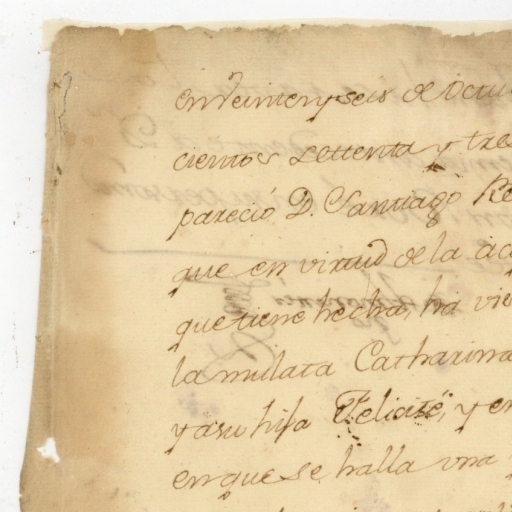 en veinte y seis de Octu
cientos settenta y tres
pareció D. Santiago Re
que en virtud de la ac
que tiene hecha, ha vi
la mulata Catharina
y a su hija Felicité, y en
en que se halla una